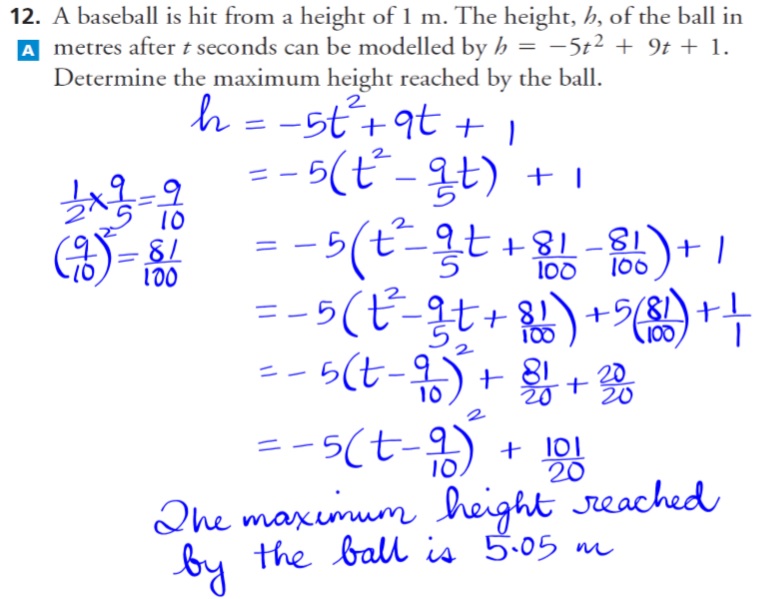 12. A baseball is hit from a height of 1 m. The height, h, of the ball in
A metres after t seconds can be modelled by h = −5t² + 9t + 1.
Determine the maximum height reached by the ball.
h = −5t² + 9t + 1
= −5(t² − 9/5t) + 1
1/2 × 9/5 = 9/10
= −5(t² − 9/5t + 81/100 − 81/100) + 1
(9/10)² = 81/100
= −5(t² − 9/5t + 81/100) + 5(81/100) + 1/1
= −5(t − 9/10)² + 81/20 + 20/20
= −5(t − 9/10)² + 101/20
The maximum height reached
by the ball is 5.05 m